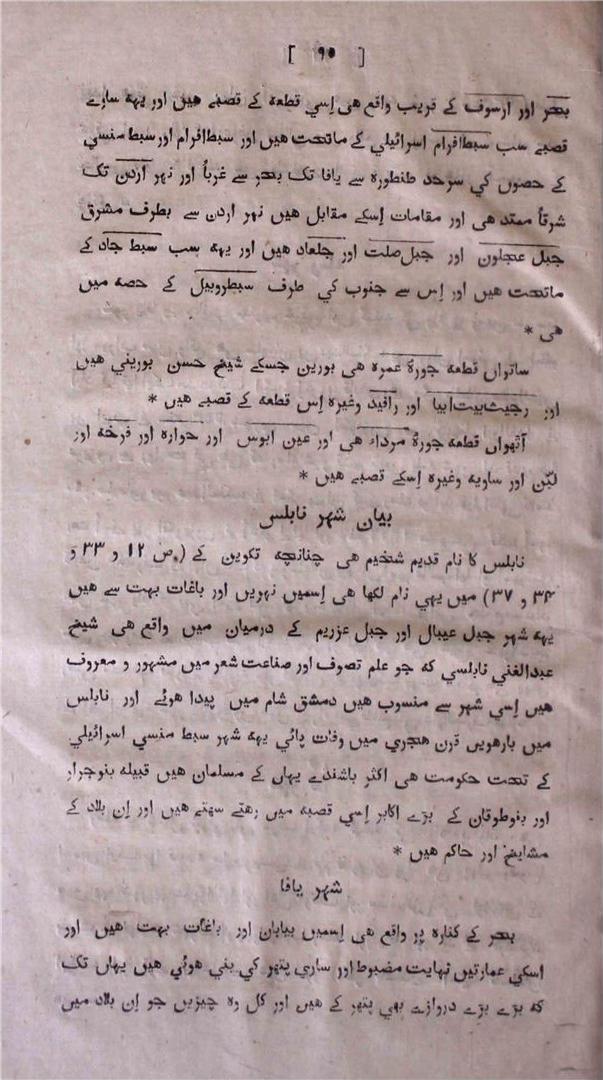 [ ٩٠ ]
بحر اور ارسوف کے قریب واقع هی اِسي قطعہ کے قصبے هیں اور یہہ سارے
قصبے سب سبط افرام اسرائیلي کے ماتحت هیں اور سبط افرام اور سبط منسي
کے حصوں کي سرحد طنطورہ سے یافا تک بحر سے غرباً اور نہر اردن تک
شرقاً ممتد هی اور مقامات اِسکے مقابل هیں نہر اردن سے بطرف مشرق
جبل عجلون اور جبل صلت اور جلعاد هیں اور یہہ سب سبط جاد کے
ماتحت هیں اور اِس سے جنوب کي طرف سبط روبیل کے حصہ میں
هی *
ساتواں قطعہ جورۃ عمرہ هی بورین جسکے شیخ حسن بوریني هیں
اور رجیث بیت ایبا اور رافید وغیرہ اِس قطعہ کے قصبے هیں *
آٹھواں قطعہ جورۃ مرداء هی اور عین ابوس اور حوارہ اور فرخہ اور
لبّن اور ساویہ وغیرہ اِسکے قصبے هیں *
بیان شہر نابلس
نابلس کا نام قدیم شخیم هی چنانچہ تکوین کے ( ص ١٢ و ٣٣ و
٣۴ و ٣٧ ) میں یہي نام لکھا هی اِسمیں نہریں اور باغات بہت سے هیں
یہہ شہر جبل عیبال اور جبل عزریم کے درمیان میں واقع هی شیخ
عبدالغني نابلسي کہ جو علم تصوف اور صناعت شعر میں مشہور و معروف
هیں اِسي شہر سے منسوب هیں دمشق شام میں پیدا هوئے اور نابلس
میں بارهویں قرن هجري میں وفات پائي یہہ شہر سبط منسي اسرائیلي
کے تحت حکومت هی اکثر باشندے یہاں کے مسلمان هیں قبیلہ بنو جرار
اور بنو طوقان کے بڑے اکابر اِسي قصبہ میں رهتے سہتے هیں اور اِن بلاد کے
مشایخ اور حاکم هیں *
شہر یافا
بحر کے کنارہ پر واقع هی اِسمیں بیابان اور باغات بہت هیں اور
اسکي عمارتیں نہایت مضبوط اور ساري پتھر کي بني هوئي هیں یہاں تک
کہ بڑے بڑے دروازے بھي پتھر کے هیں اور کل وہ چیزیں جو اِن بلاد میں